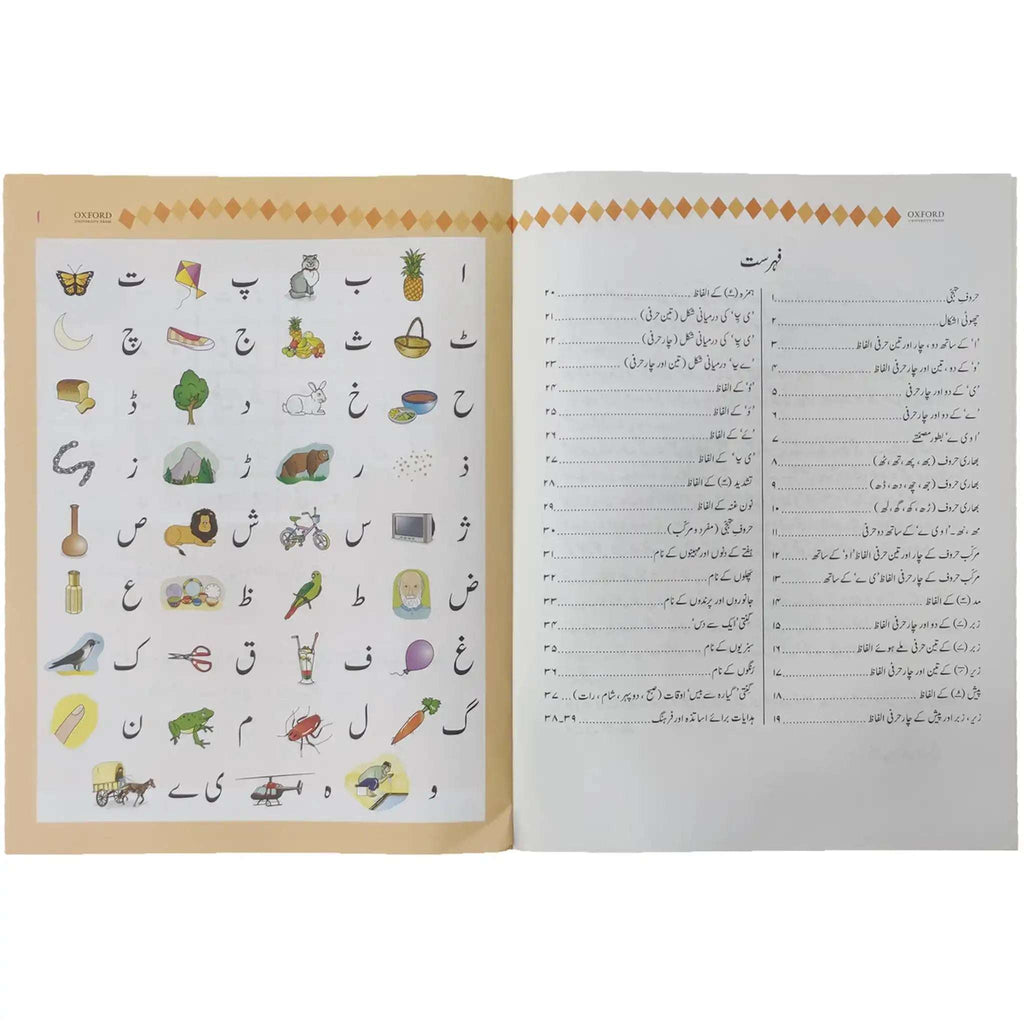 OXFORD
UNIVERSITY PRESS
فہرست
حروفِ تہجّی ۱
چھوٹی اشکال ۲
'ا' کے ساتھ دو، چار اور تین حرفی الفاظ ۳
'و' کے دو، تین اور چار حرفی الفاظ ۴
'ی' کے دو اور چار حرفی ۵
'ے' کے دو اور چار حرفی ۶
'ا و ی ے' بطور مصمتے ۷
بھاری حروف (بھ، پھ، تھ، ٹھ) ۸
بھاری حروف (جھ، چھ، دھ، ڈھ) ۹
بھاری حروف (ڑھ، کھ، گھ، لھ) ۱۰
مھ، نھ۔ 'ا و ی ے' کے ساتھ دو حرفی ۱۱
مرکّب حروف کے چار اور تین حرفی الفاظ 'ا و' کے ساتھ ۱۲
مرکّب حروف کے چار حرفی الفاظ 'ی ے' کے ساتھ ۱۳
مد (ٓ) کے الفاظ ۱۴
زبر (َ) کے دو اور چار حرفی الفاظ ۱۵
زبر (َ) کے تین حرفی ملے ہوئے الفاظ ۱۶
زیر (ِ) کے تین اور چار حرفی الفاظ ۱۷
پیش (ُ) کے الفاظ ۱۸
زیر، زبر اور پیش کے چار حرفی الفاظ ۱۹
ہمزہ (ء) کے الفاظ ۲۰
'ی یا' کی درمیانی شکل (تین حرفی) ۲۱
'ی یا' کی درمیانی شکل (چار حرفی) ۲۲
'ے یا' درمیانی شکل (تین اور چار حرفی) ۲۳
کے الفاظ ۲۴
کے الفاظ ۲۵
کے الفاظ ۲۶
'ی یا' کے الفاظ ۲۷
تشدید (ّ) کے الفاظ ۲۸
نون غنہ کے الفاظ ۲۹
حروفِ تہجّی (مفرد و مرکّب) ۳۰
ہفتے کے دنوں اور مہینوں کے نام ۳۱
پھلوں کے نام ۳۲
جانوروں اور پرندوں کے نام ۳۳
گنتی 'ایک سے دس' ۳۴
سبزیوں کے نام ۳۵
رنگوں کے نام ۳۶
گنتی 'گیارہ سے بیس' اوقات (صبح، دوپہر، شام، رات) ۳۷
ہدایات برائے اساتذہ اور فرہنگ ۳۸۔۳۹
OXFORD
UNIVERSITY PRESS
۱
ا ب پ ت
ٹ ث ج چ
ح خ د ڈ
ذ ر ڑ ز
ژ س ش ص
ض ط ظ ع
غ ف ق ک
گ ل م ن
و ہ ی ے